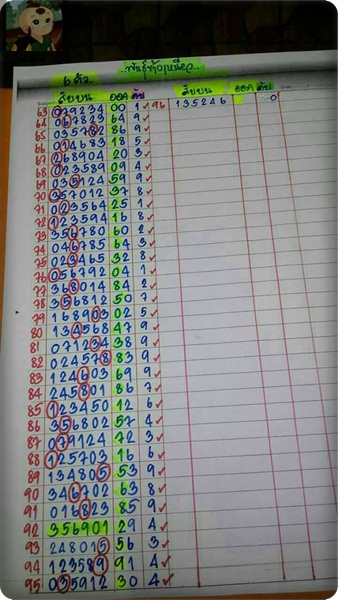 พันธุ์ข้าวเหนียว
6 ตัว
สิบบน ออก ต้น สิบบน ออก ต้น
63 079234 00 1 ✓ 96 135246 0
64 067823 64 9 ✓
65 035782 86 9 ✓
66 014683 18 5 ✓
67 268904 20 3 ✓
68 023589 09 4 ✓
69 035124 59 9 ✓
70 357012 37 8 ✓
71 023564 25 1 ✓
72 123594 16 8 ✓
73 356780 60 2 ✓
74 046785 64 3 ✓
75 023465 32 8 ✓
76 056792 04 1 ✓
77 368014 84 2 ✓
78 356812 50 7 ✓
79 168903 02 5 ✓
80 134568 47 9 ✓
81 071234 38 9 ✓
82 024578 83 9 ✓
83 124603 69 9 ✓
84 245801 86 7 ✓
85 123450 12 6 ✓
86 356802 57 4 ✓
87 079124 72 3 ✓
88 125703 16 6 ✓
89 134805 53 9 ✓
90 346702 63 8 ✓
91 016823 85 9 ✓
92 356901 29 4 ✓
93 248015 56 3 ✓
94 123589 91 4 ✓
95 035912 30 4 ✓